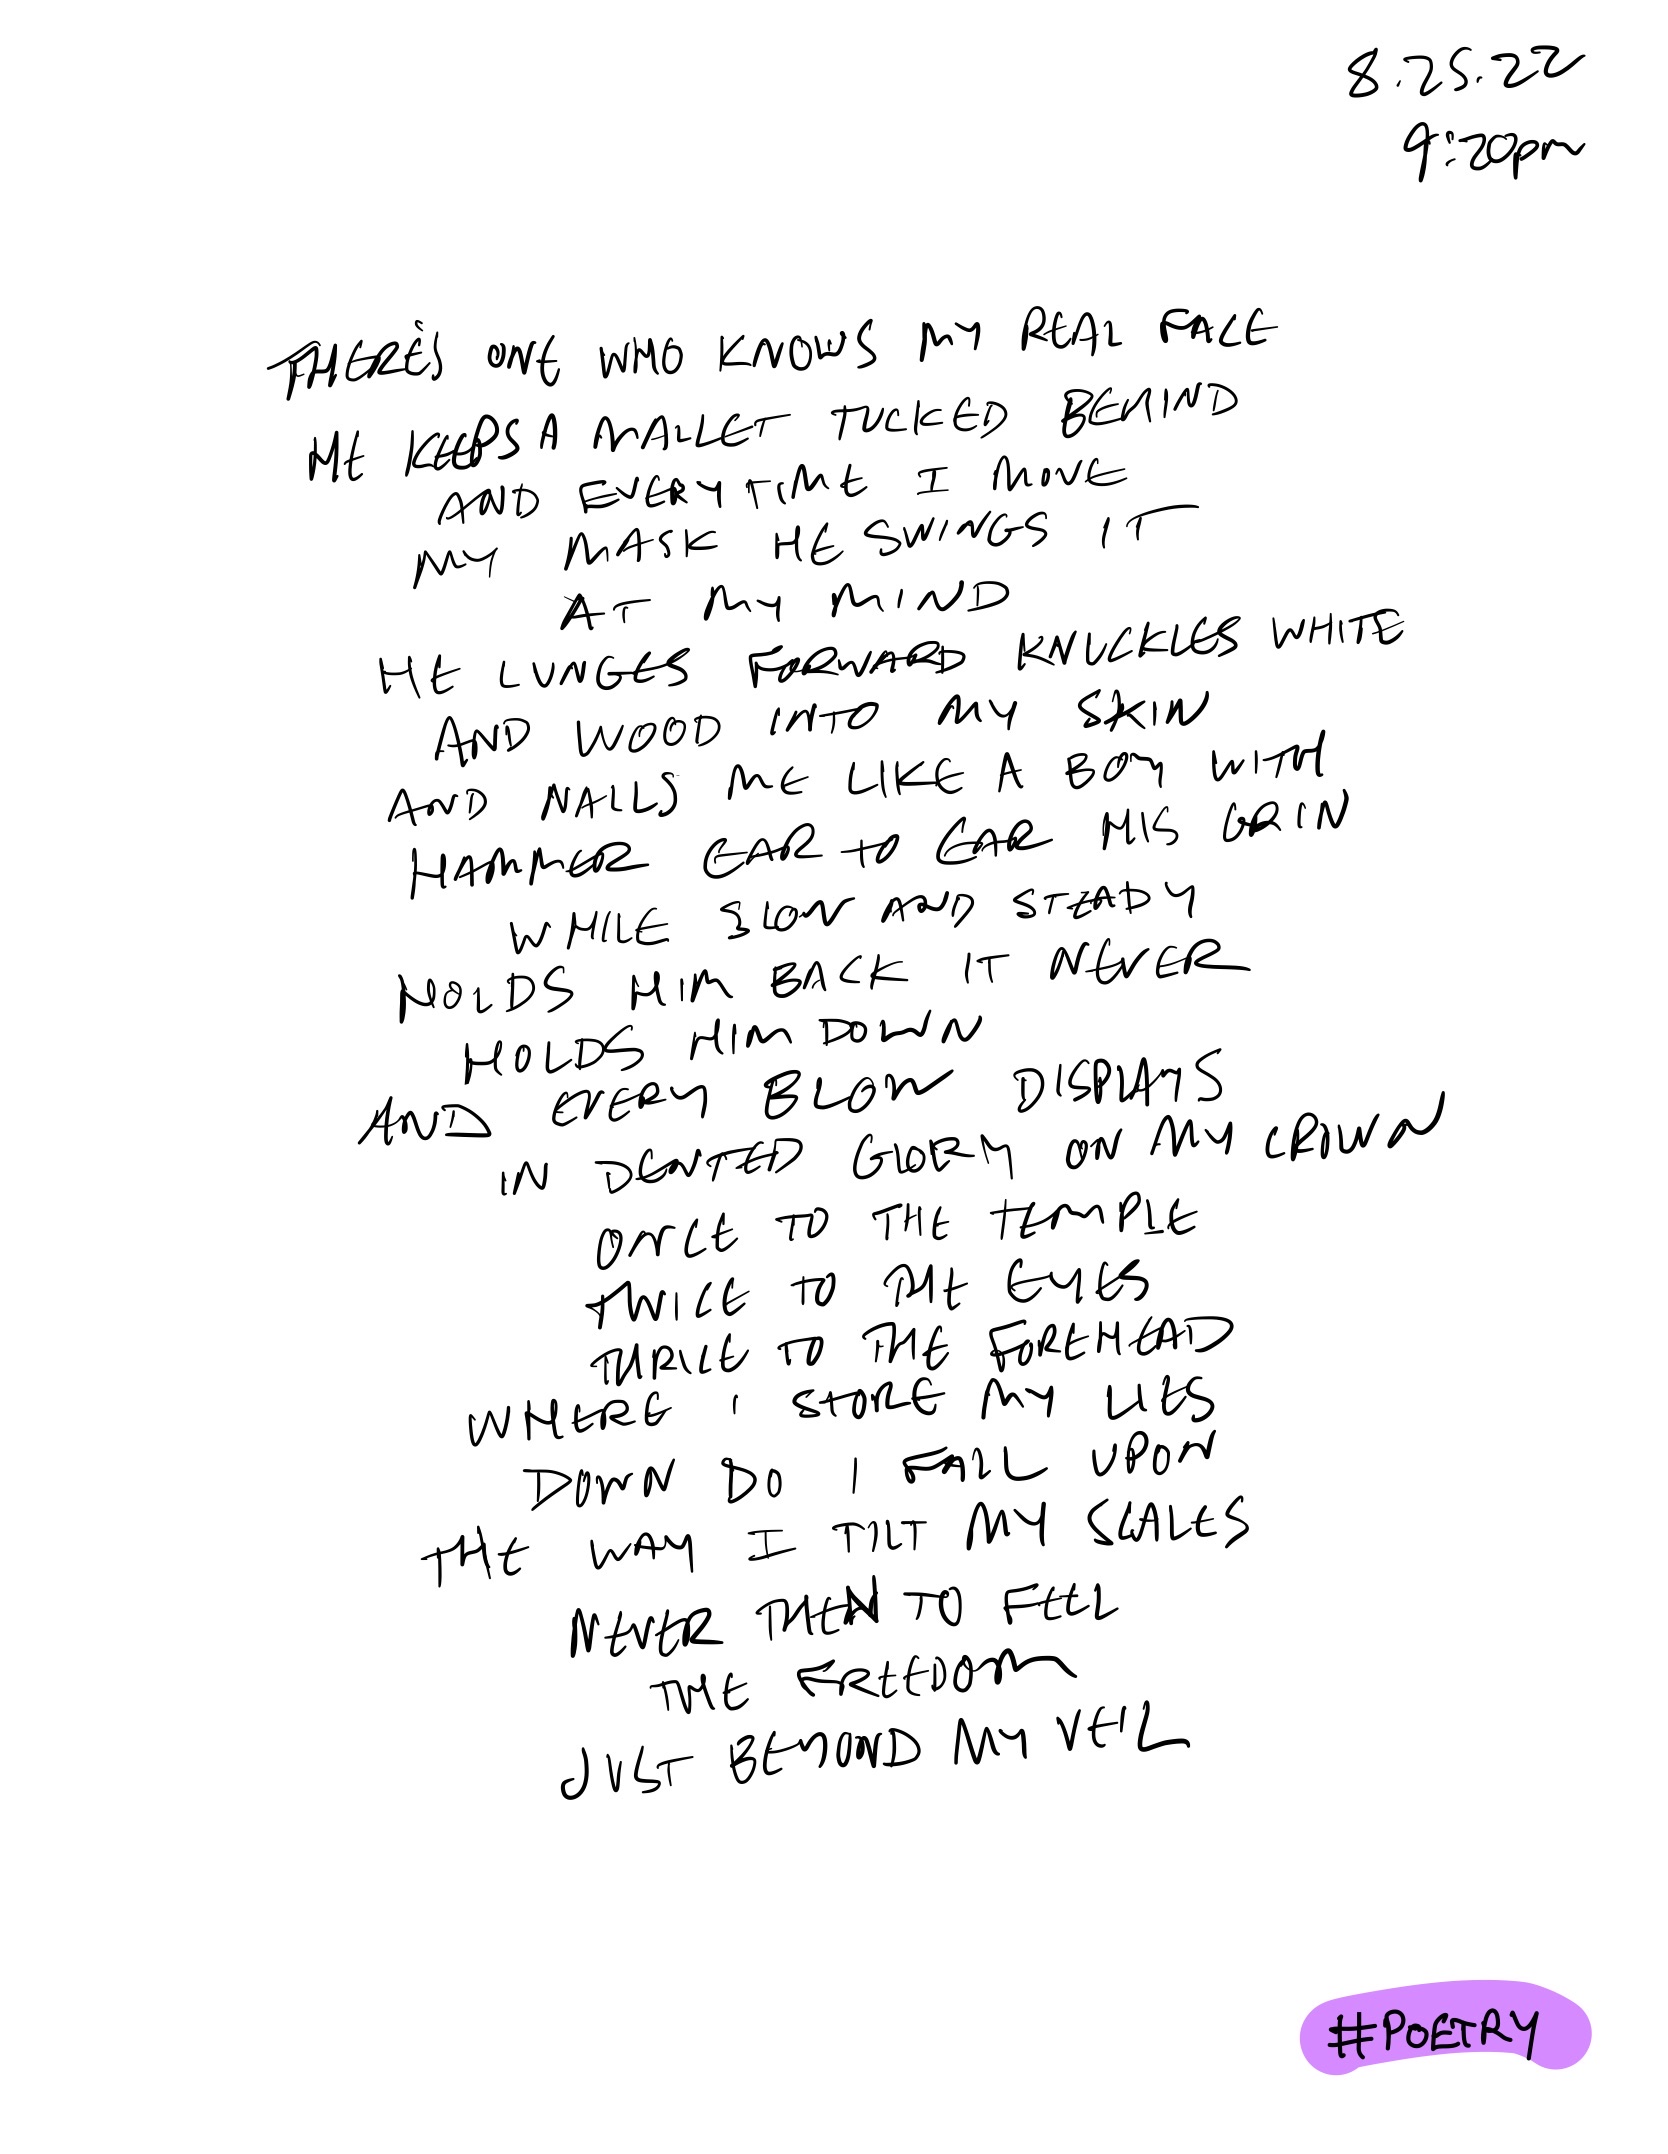 8.25.22
9:20pm
THERE'S ONE WHO KNOWS MY REAL FACE
HE KEEPS A MALLET TUCKED BEHIND
AND EVERYTIME I MOVE
MY MASK HE SWINGS IT
AT MY MIND
HE LUNGES FORWARD KNUCKLES WHITE
AND WOOD INTO MY SKIN
AND NAILS ME LIKE A BOY WITH
HAMMER EAR TO EAR HIS GRIN
WHILE SLOW AND STEADY
HOLDS HIM BACK IT NEVER
HOLDS HIM DOWN
AND EVERY BLOW DISPLAYS
IN DENTED GLORY ON MY CROWN
ONCE TO THE TEMPLE
TWICE TO THE EYES
THRICE TO THE FOREHEAD
WHERE I STORE MY LIES
DOWN DO I FALL UPON
THE WAY I TILT MY SCALES
NEVER THEN TO FEEL
THE FREEDOM
JUST BEYOND MY VEIL
#POETRY